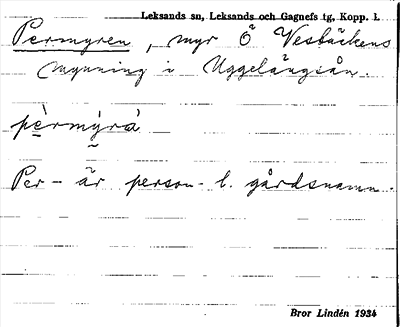 Leksands sn, Leksands och Gagnefs tg, Kopp. l.
Permyren, myr Ö Vesbäckens
mynning i Uggelängsån.
pèrmýrà
Per- är person- l. gårdsnamn.
Bror Lindén 1934